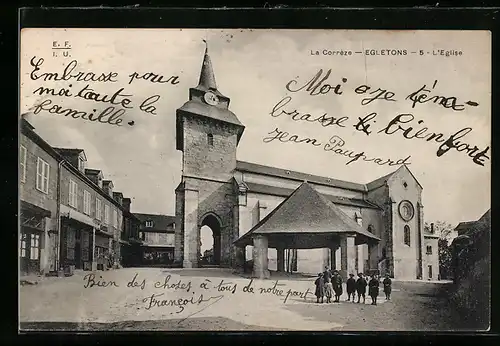 E. F.
I. U.
La Corrèze — EGLETONS — 5 - L'Eglise
Embrasse pour
moi toute la
famille.
Moi aze téma-
brasse bien fort
Jean Paupard
Bien des choses à tous de notre part
François